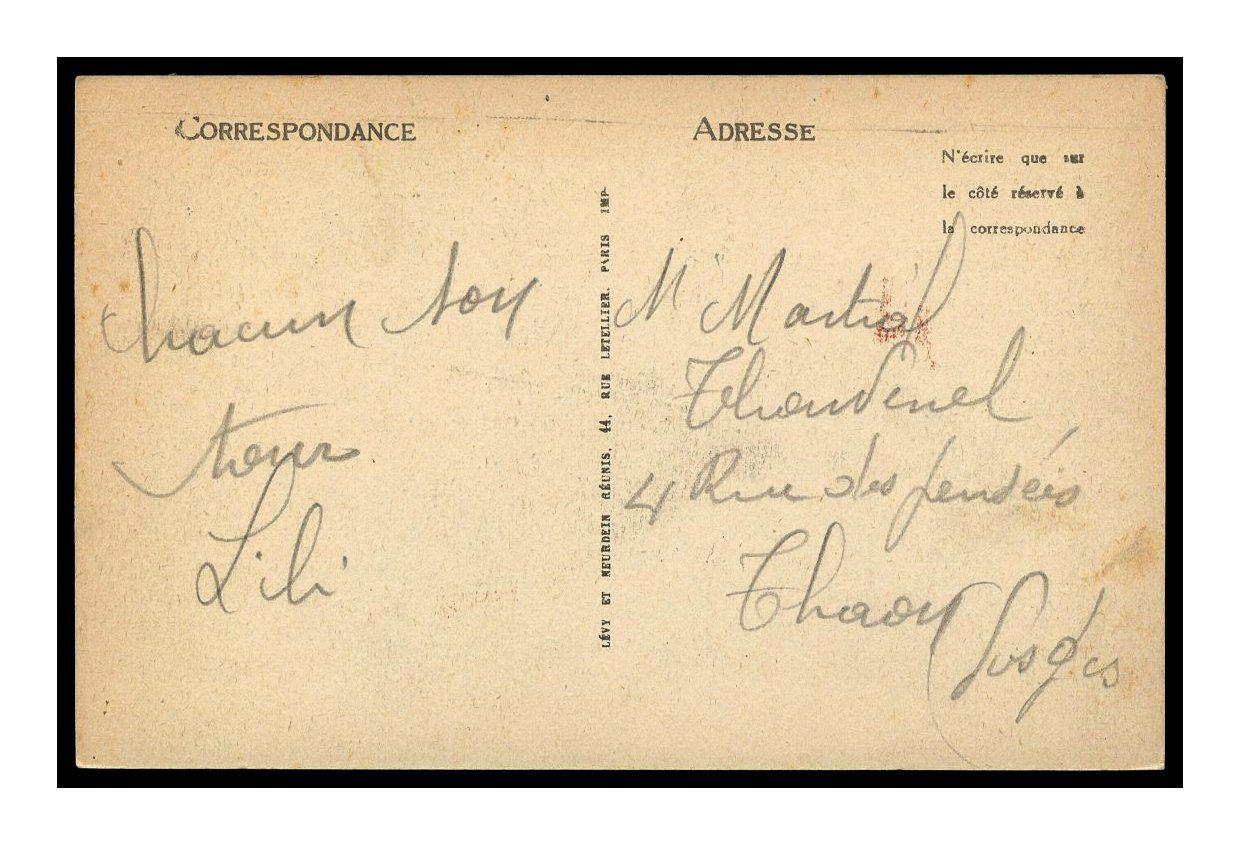 CORRESPONDANCE
Chacun son
tour
Lili
LÉVY ET NEURDEIN RÉUNIS, 44, RUE LETELLIER, PARIS IMP.
ADRESSE
N'écrire que sur
le côté réservé à
la correspondance
Mr Martial
Thouvenel
4 Rue des pensées
Thaon
Vosges